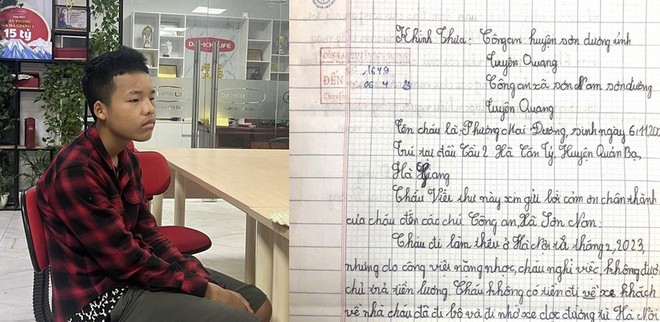 15 tỷ
DAI-ICHI LIFE
Kính thưa: Công an huyện Sơn Dương tỉnh
Tuyên Quang
Công an xã Sơn Nam, Sơn Dương
Tuyên Quang
ĐẾN
1649
06.4.23
Tên cháu là Phượng Mai Dương, sinh ngày 6/11/20
Trú tại đầu Cầu 2 Hà Tân Tý, Huyện Quản Bạ,
Hà Giang
Cháu viết thư này xin gửi lời cảm ơn chân thành
của cháu đến các chú Công an, Xã Sơn Nam.
Cháu đi làm thuê ở Hà Nội từ tháng 2, 2023,
nhưng do công việc nặng nhọc, cháu nghỉ việc, không đượ
chủ trả tiền lương. Cháu không có tiền đi về xe khách
về nhà cháu đã đi bộ và đi nhờ xe dọc đường từ Hà Nội